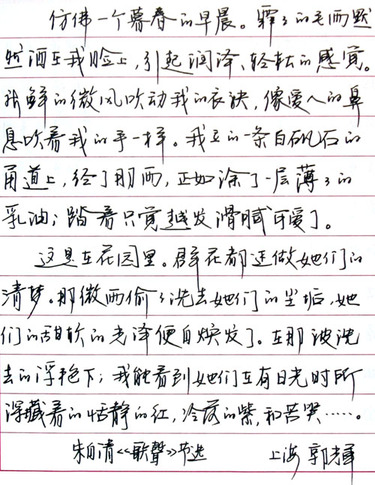 仿佛一个暮春的早晨。霏々的毛雨默
然洒在我脸上,引起润泽、轻松的感觉。
新鲜的微风吹动我的衣袂,像爱人的鼻
息吹着我的手一样。我立的一条白矾石的
甬道上,经了那雨,正如涂了一层薄々的
乳油;踏着只觉越发滑腻可爱了。
这是在花园里。群花都还做她们的
清梦。那微雨偷々洗去她们的尘垢,她
们的甜软的光泽便自焕发了。在那被洗
去的浮艳下,我能看到她们在有日光时所
深藏着的恬静的红,冷落的紫,和苦笑……。
朱自清《歌聲》节选 上海 郭